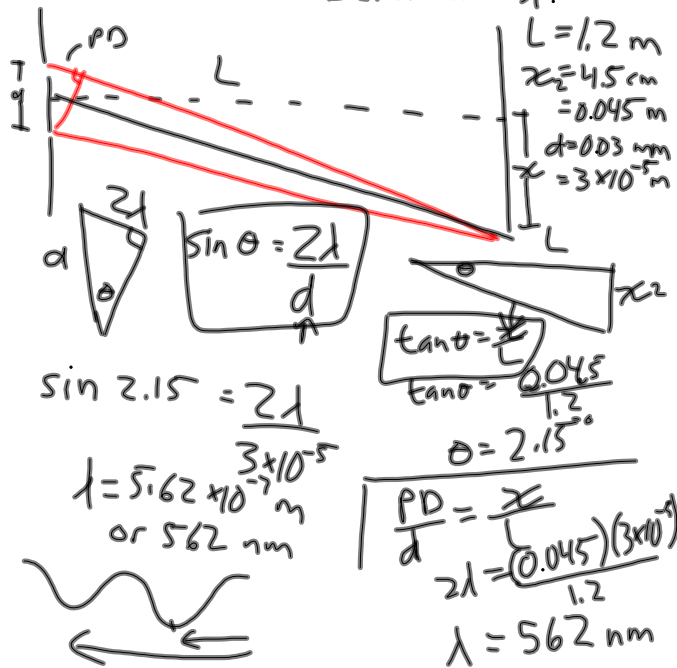 PD
L
d
L = 1.2 m
x₂ = 4.5 cm
= 0.045 m
d = 0.03 mm
= 3 × 10⁻⁵ m
x
2λ
d
θ
sin θ = 2λ / d
L
θ
x₂
tan θ = x / L
tan θ = 0.045 / 1.2
θ = 2.15°
sin 2.15 = 2λ / 3×10⁻⁵
λ = 5.62 × 10⁻⁷ m
or 562 nm
PD / d = x / L
2λ = (0.045)(3×10⁻⁵) / 1.2
λ = 562 nm